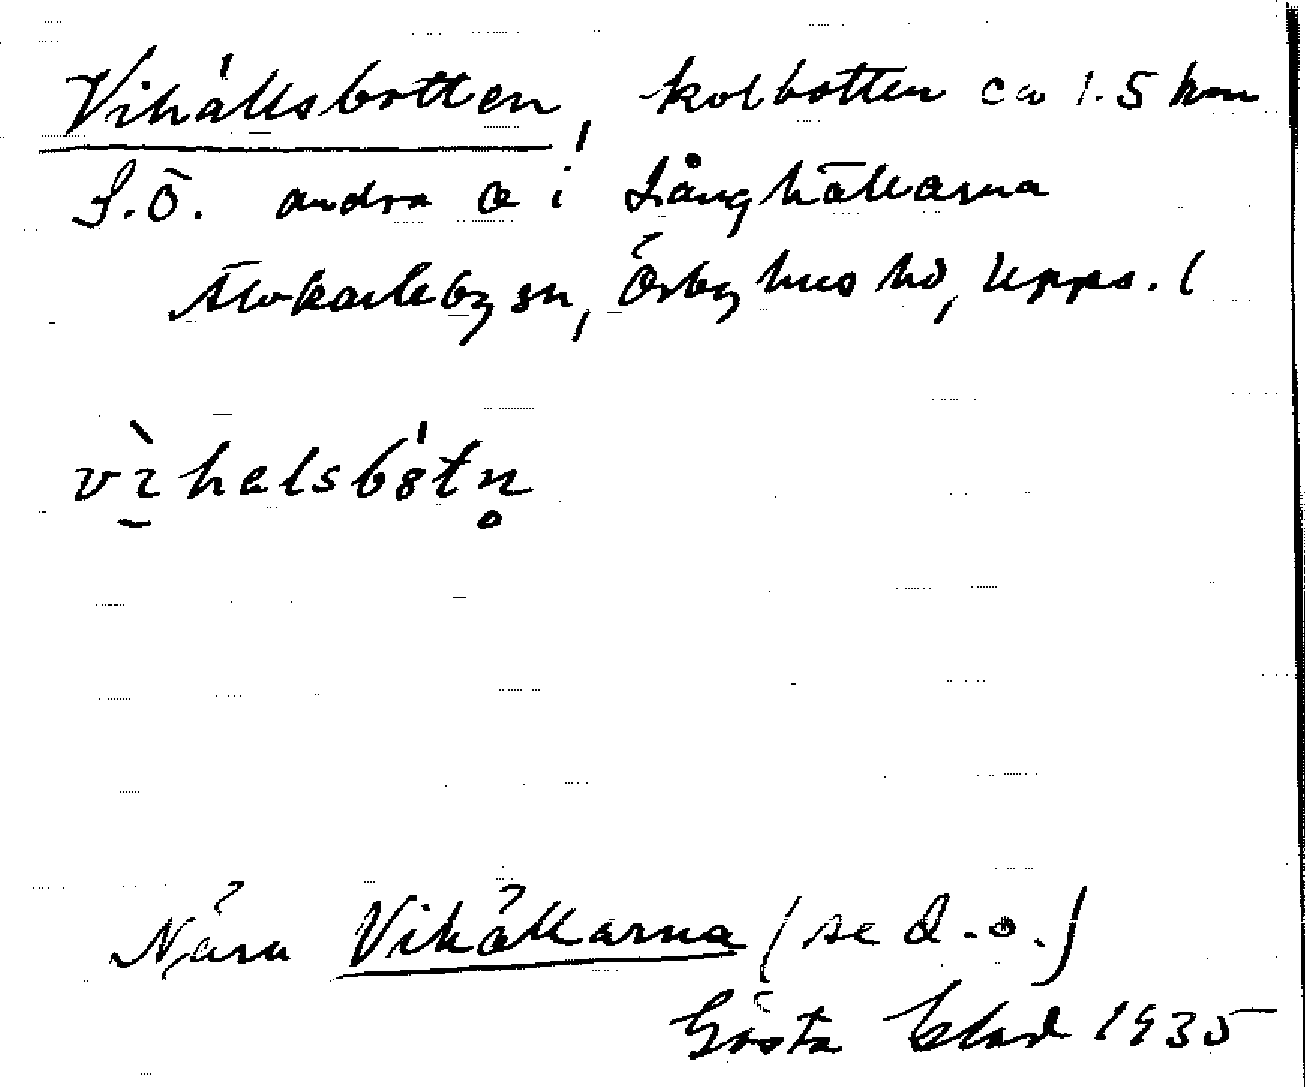 Vihällsbotten, kolbotten ca 1.5 km
S.Ö. andra œ i Långhällarna
Älvkarleby sn, Örbyhus hd, Upps. l
vìhelsbòtn̥
Nära Vihällarna (se d.o.)
Gösta 1935